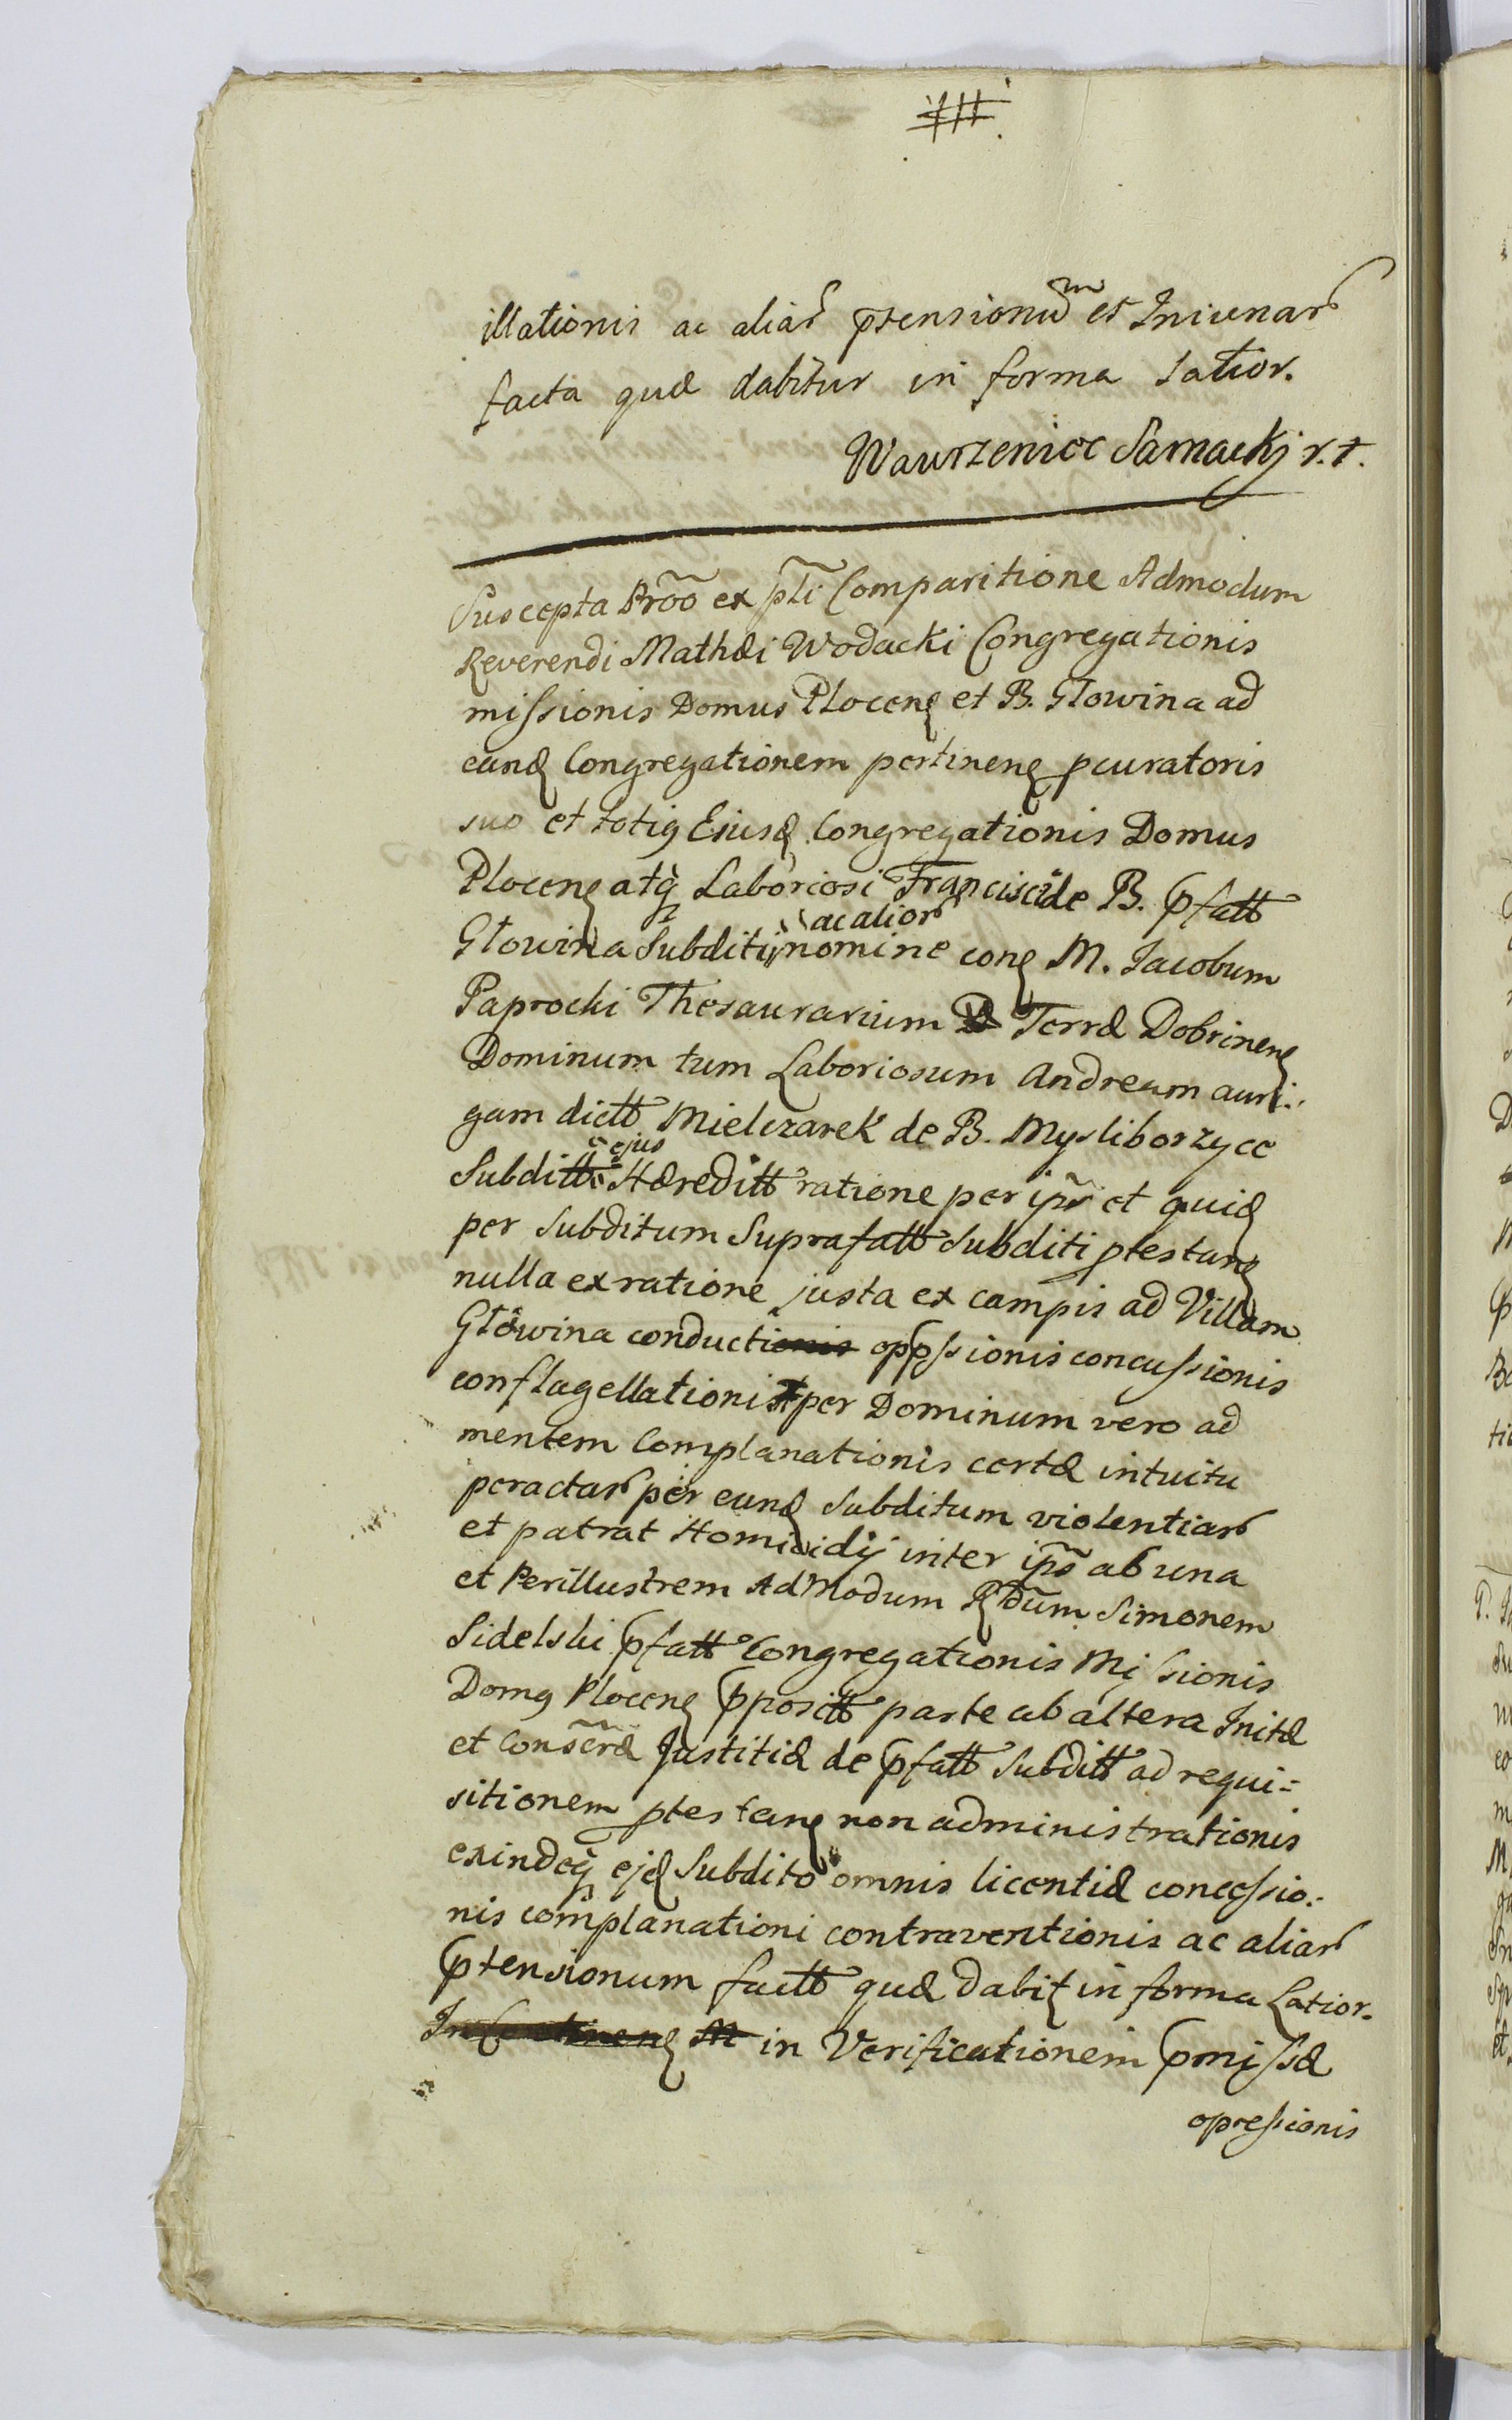 illationis ac aliar ptensionum et Iniuriar
facta quæ dabitur in forma latior.
Wawrzeniec Sarnackj
Suscepta Prōō ex pti Comparitione Admodum
Reverendi Mathæi Wodacki Congregationis
missionis Domus Plocenę et B. Głowina ad
eandę Congregationem pertinenę pcuratoris
suo et totię Eiusdę Congregationis Domus
Plocenę atq Laboriosi Francisci de B. pfatt
Głowina Subditi ac alior nomine conę M. Iacobum
Paprocki Thesaurarium Terræ Dobrinenę
Dominum tum Laboriosum Andream auri:
gam dictt Mielczarek de B. Mysliborzyce
Subditt ejus Hæreditt ratione per ips et quidę
per Subditum Suprafatt Subditi ptestanę
nulla ex ratione justa ex campis ad Villam
Głowina conductionis oppssionis concussionis
conflagellationis per Dominum vero ad
mentem Complanationis certæ intuitu
peractar per eundę Subditum violentiar
et patrat Homicidij inter ips ab una
et Perillustrem AdModum Rdum Simonem
Sidelski pfatt Congregationis Missionis
Domę Plocenę ppositt parte ab altera Initæ
et Conscræ Justitiæ de pfatt Subditt ad requi:
sitionem ptestanę non administrationis
exindeq ejdę Subdito omnis licentiæ concessio:
nis complanationi contraventionis ac aliar
ptensionum factt quæ dabit in forma Latior.
M in Verificationem pmissæ
opressionis